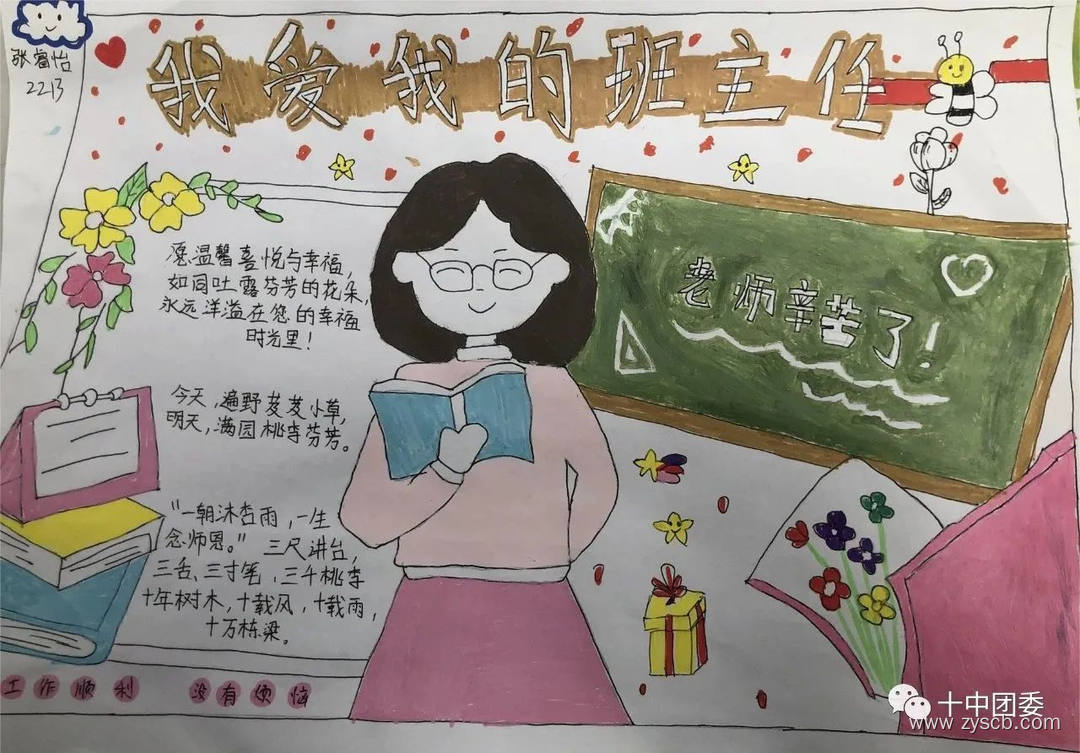 张睿怡
2213
我爱我的班主任
愿温馨喜悦与幸福，
如同吐露芬芳的花朵，
永远洋溢在您的幸福
时光里！
今天，遍野芨芨小草，
明天，满园桃李芬芳。
"一朝沐杏雨，一生
念师恩。" 三尺讲台，
三舌、三寸笔，三千桃李
十年树木，十载风，十载雨，
十万栋梁。
工作顺利 没有烦恼
老师辛苦了！
十中团委
www.zyscb.com